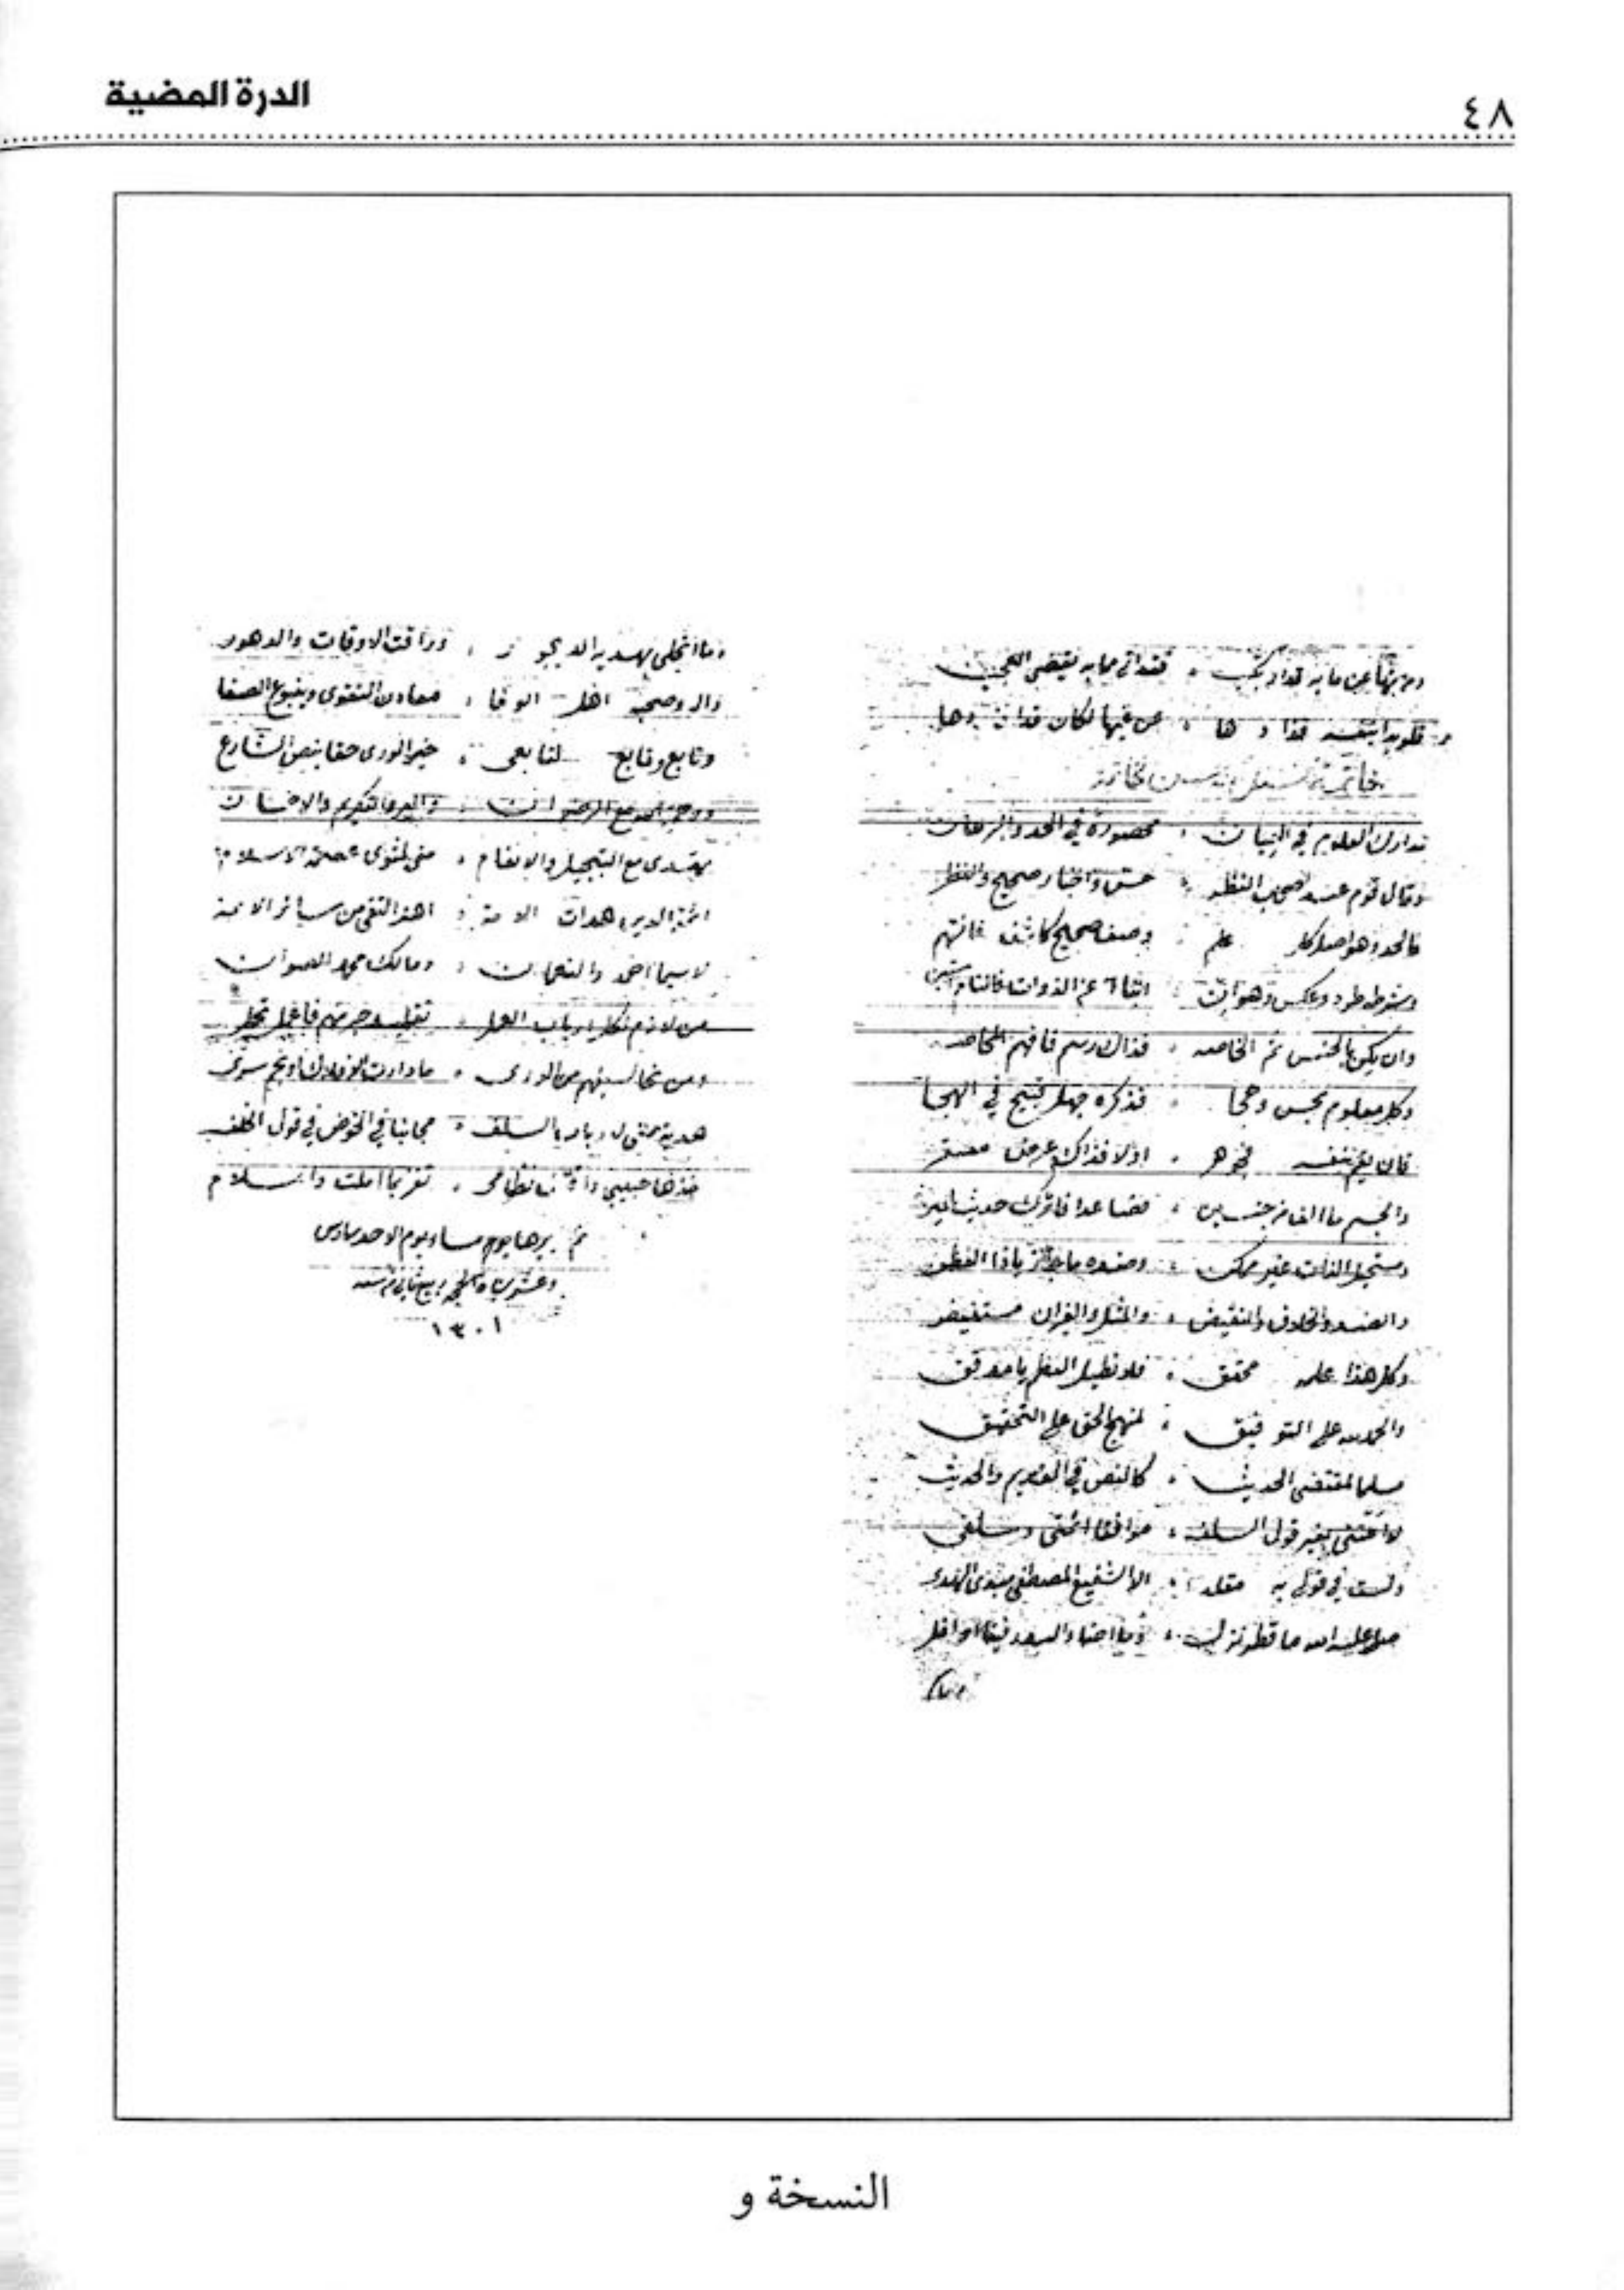 ٤٨
الدرة المضية
ومن نها عن ما به قد ارتكب ، فقد اتى مما به يقضى العجب
فلو بدا بنفسه فذادها ، عن غيها لكان قد افادها
خاتمة
مدارك العلوم في البيان ، محصورة في الحد والبرهان
وقال قوم عند اصحاب النظر ، حس واخبار صحيح والنظر
فالحد وهو اصل كل علم ، وصف صحيح كاشف فافهم
وشرطه طرد وعكس وهو ان ، انبا عن الذوات فالتام استبن
وان يكن بالجنس ثم الخاصه ، فذاك رسم فافهم المحاصه
وكل معلوم بحس وحجا ، فنكره جهل قبيح في الهجا
فان يقم بنفسه فجوهر ، اولا فذاك عرض مفتقر
والجسم ما الف من جزئين ، فصاعدا فاترك حديث المين
ومستحيل الذات غير ممكن ، وضده ما جائز ياذا الفطن
والضد والخلاف والنقيض ، والمثل والغيران مستفيض
وكل هذا علمه محقق ، فلا نطيل النظم يا مدقق
والحمد لله على التوفيق ، لمنهج الحق على التحقيق
مسلما لمقتضى الحديث ، كالنص في القديم والحديث
لا اعتني بغير قول السلف ، موافقا ائمتي وسلفي
ولست في قولي به مقلدا ، الا الشفيع المصطفى مبدي الهدى
صلى عليه الله ما قطر نزل ، وما اضاء البدر فينا او افل
وما
وما انجلى بهديه الديجور ، وراقت الاوقات والدهور
واله وصحبه اهل الوفا ، معادن التقوى وينبوع الصفا
وتابع وتابع لتابعي ، خير الورى حقا بنص الشارع
ورحمة الله مع الرضوان ، والبر والتكريم والاحسان
تهدى مع التبجيل والانعام ، مني لمثوى عصمة الاسلام
ائمة الدين هدات الامة ، اهل التقى من سائر الائمة
لاسيما احمد والنعمان ، ومالك محمد الصنوان
من لازم لكل ارباب العمل ، تقليد حبر منهم فاعمل تخل
ومن نحا لسبلهم من الورى ، ما دارت الافلاك او نجم سرى
هدية مني لارباب السلف ، مجانبا في الخوض في قول الخلف
خذها حبيبي واقتنا نظامي ، تفز بما املت والسلام
تم يوم الاحد سادس
وعشرين ربيع ثاني سنه
١٣٠١
النسخة و